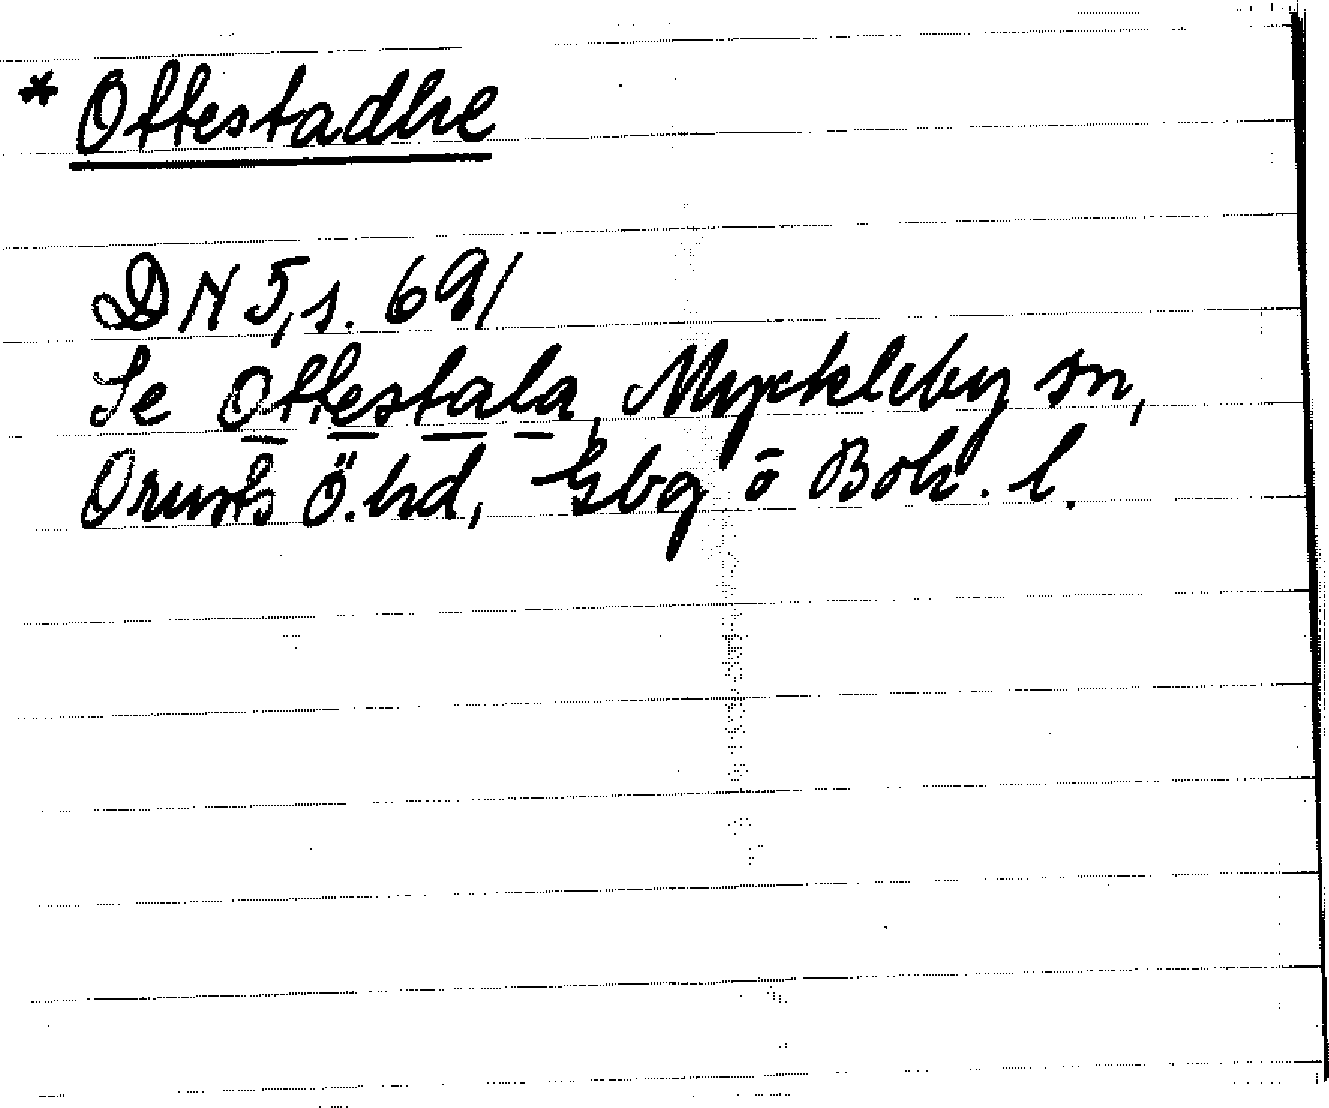 * Offestadhe
DN 5, s. 691
Se Offestala, Myckleby sn,
Orusts ö. hd, Gbg o Boh. l.